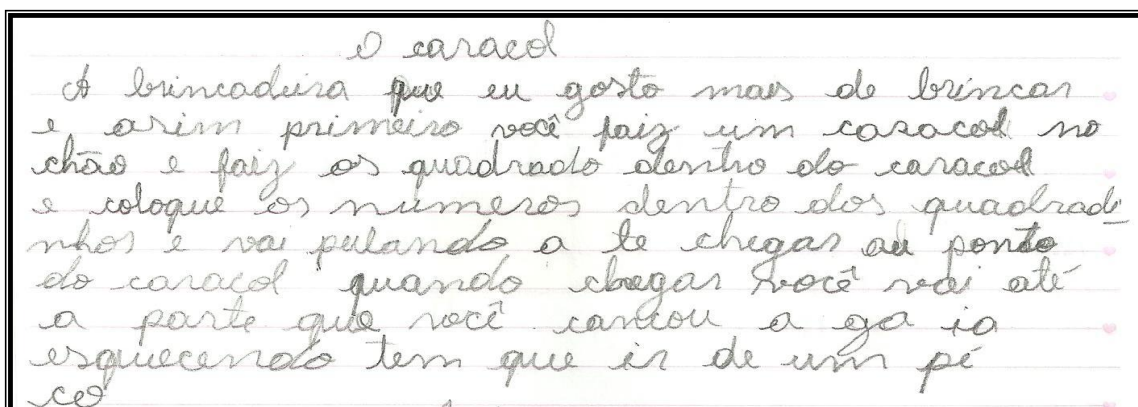 O caracol
A brincadeira que eu gosto mais de brincar
e asim primeiro você faiz um caracol no
chão e faiz os quadrado dentro do caracol
e coloque os numeros dentro dos quadradi
nhos e vai pulando a te chegar au ponto
do caracol quando chegar você vai até
a parte que você cancou a ga ia
esquecendo tem que ir de um pé
co